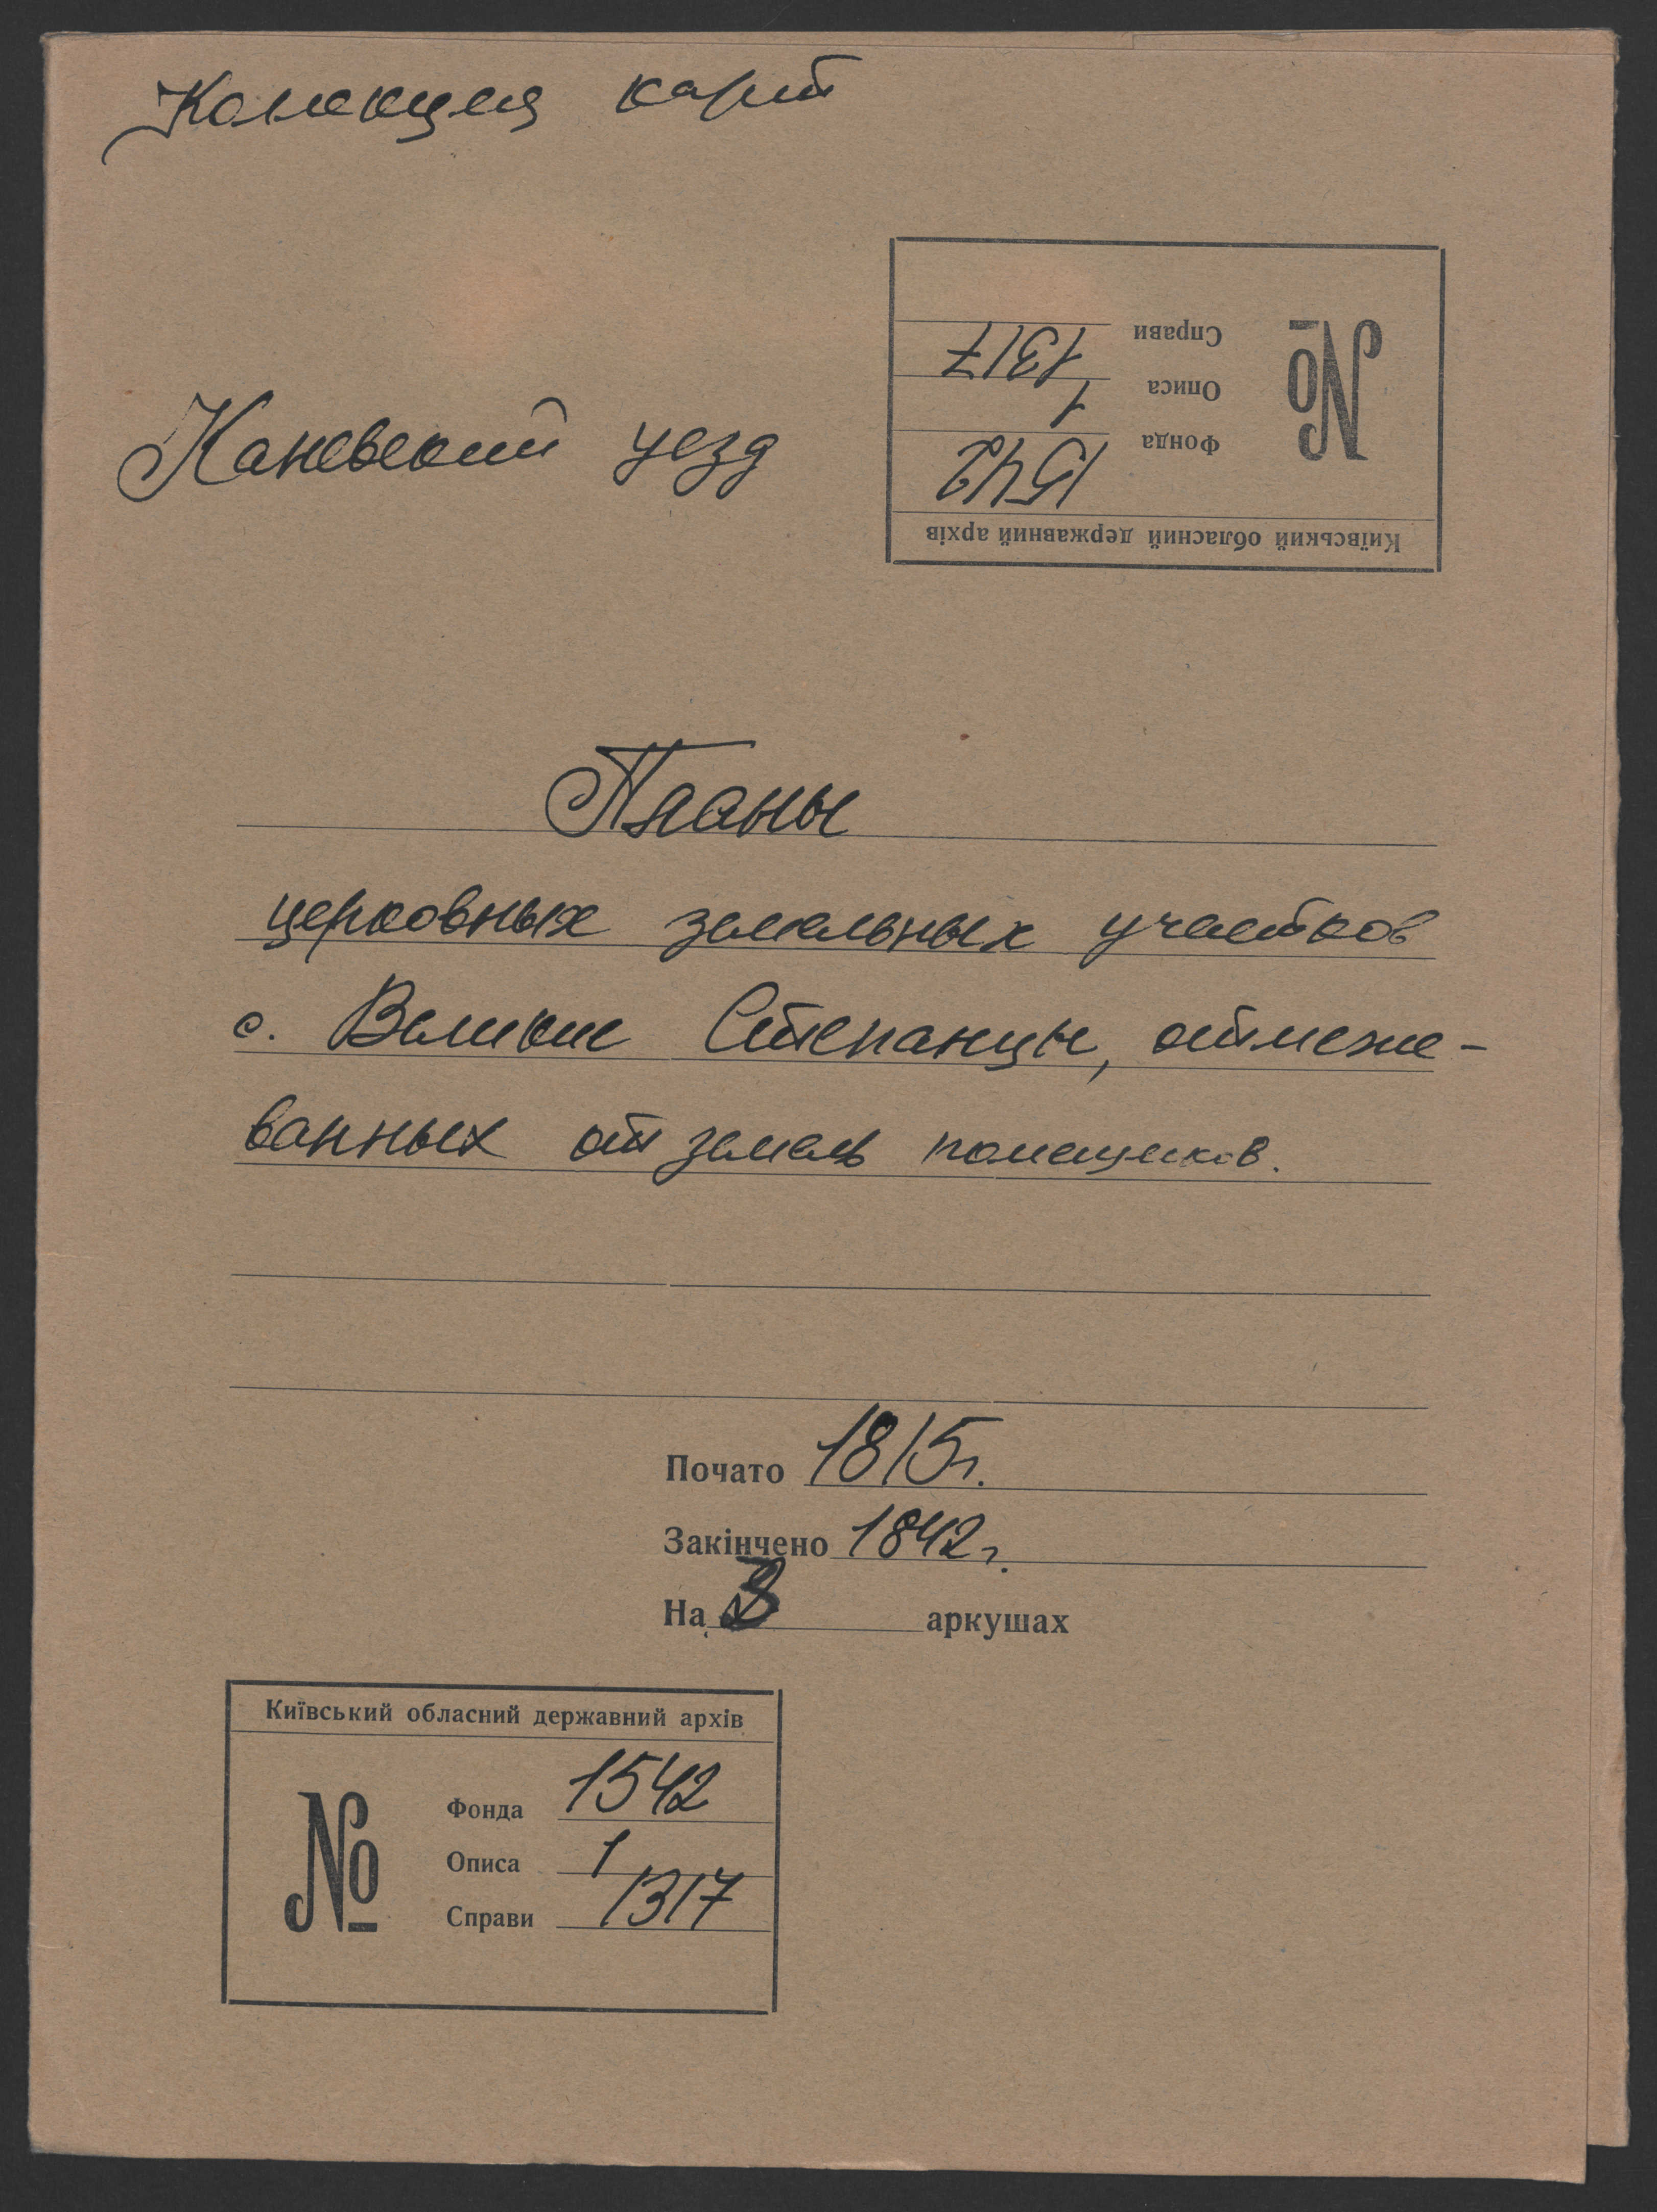 Колекция карт
Справи 1317
Описа 1
Фонда 1542
№
Київський обласний державний архів
Каневский уезд
Планы
церковных земельных участков
с. Великие Степанцы, отмеже-
ванных от земель помещиков.
Почато 1815г.
Закінчено 1842г.
На аркушах
Київський обласний державний архів
№
Фонда 1542
Описа 1
Справи 1317